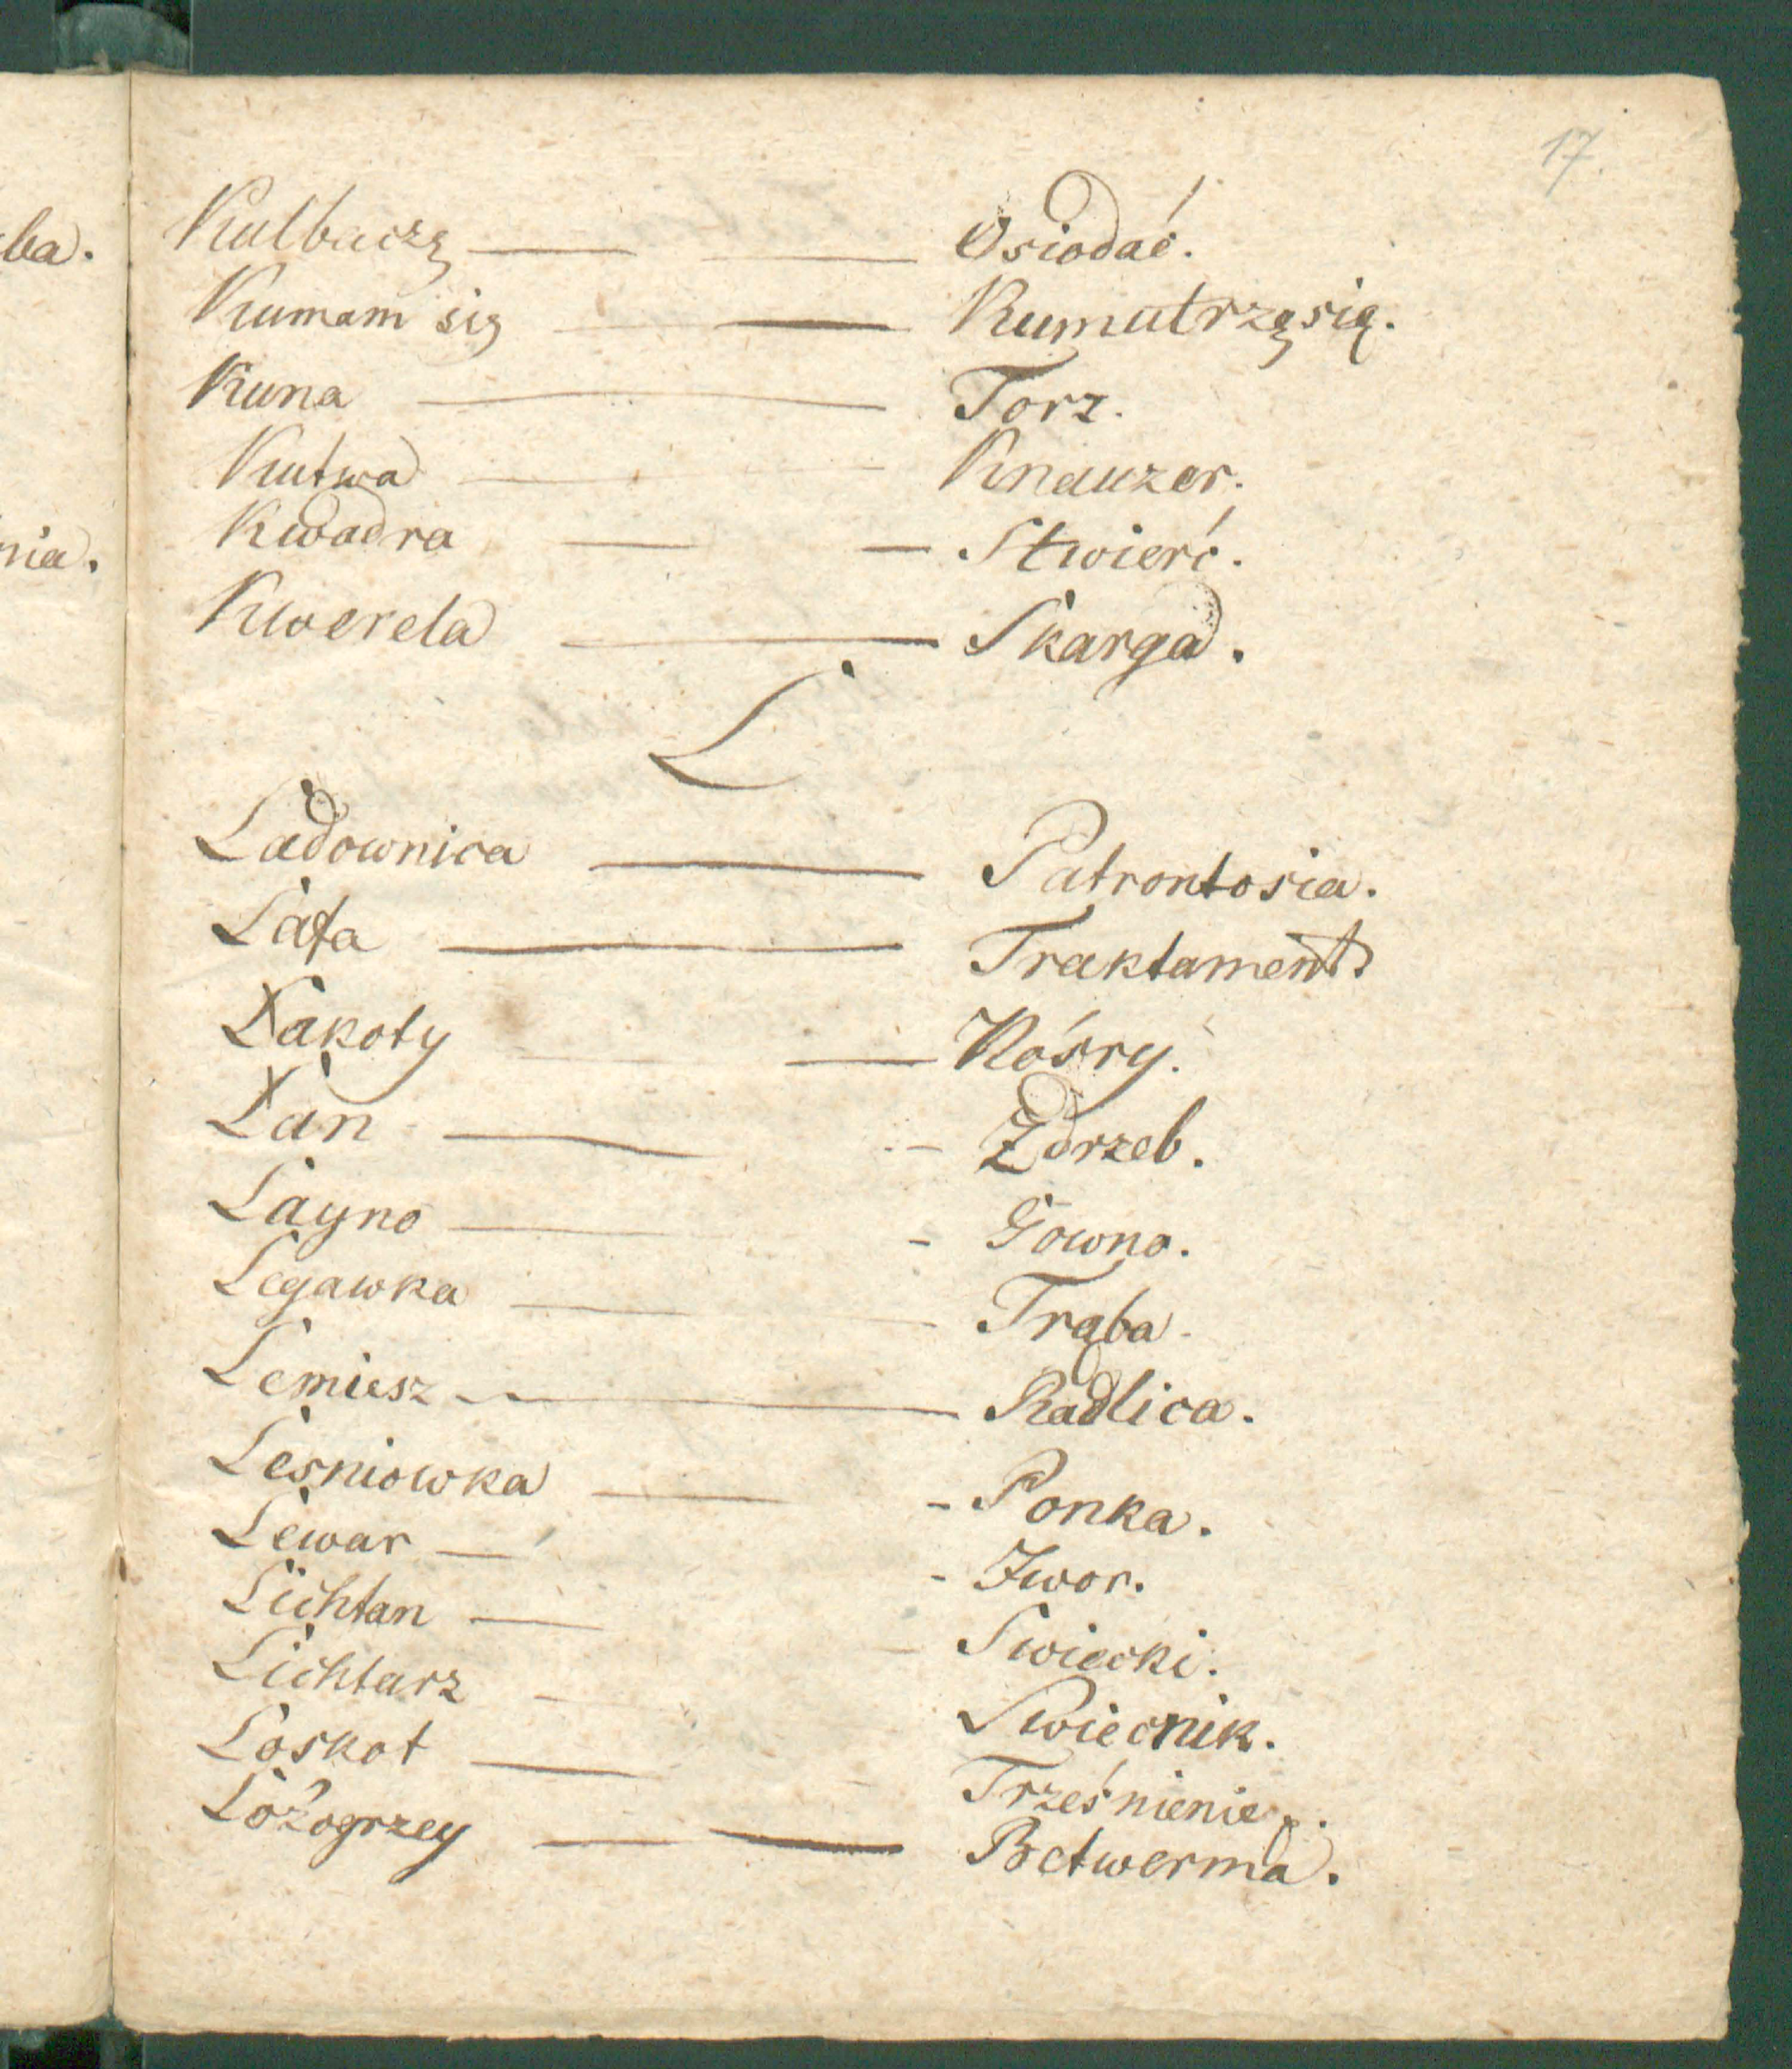 17.
Kulbaczę — — Osiodać.
Kumam się — — Kumutrzę się.
Kuna — Torz.
Kutwa — Knauzer.
Kwadra — — Stwierć.
Kwerela — Skarga.
L
Ladownica — Patrontosia.
Lafa — Traktament.
Łakoty — Kóśry.
Łan — - Zdrzeb.
Layno — - Gowno.
Legawka — Trąba.
Lemiesz — Radlica.
Lesniowka — - Ponka.
Lewar — - Zwor.
Lichtan — Swiecki.
Lichtarz — Swiecnik.
Loskot — Trześnienie.
Lożogrzey — — Betwerma.
ba.
nia.